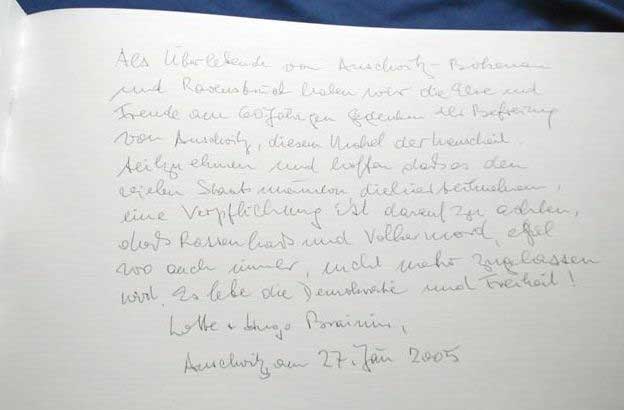 Als Überlebende von Auschwitz-Birkenau
und Ravensbrück haben wir die Ehre und
Freude am 60 jährigen gedenken der Befreiung
von Auschwitz, diesem der Menschheit
teilzunehmen und hoffen dass es den
vielen Staatsmännern die hier teilnehmen,
eine Verpflichtung ist darauf zu achten,
dass Rassenhass und Völkermord, egal
wo auch immer, nicht mehr zugelassen
wird. Es lebe die Demokratie und Freiheit!
Lotte + Hugo Brainin,
Auschwitz, am 27. Jän 2005